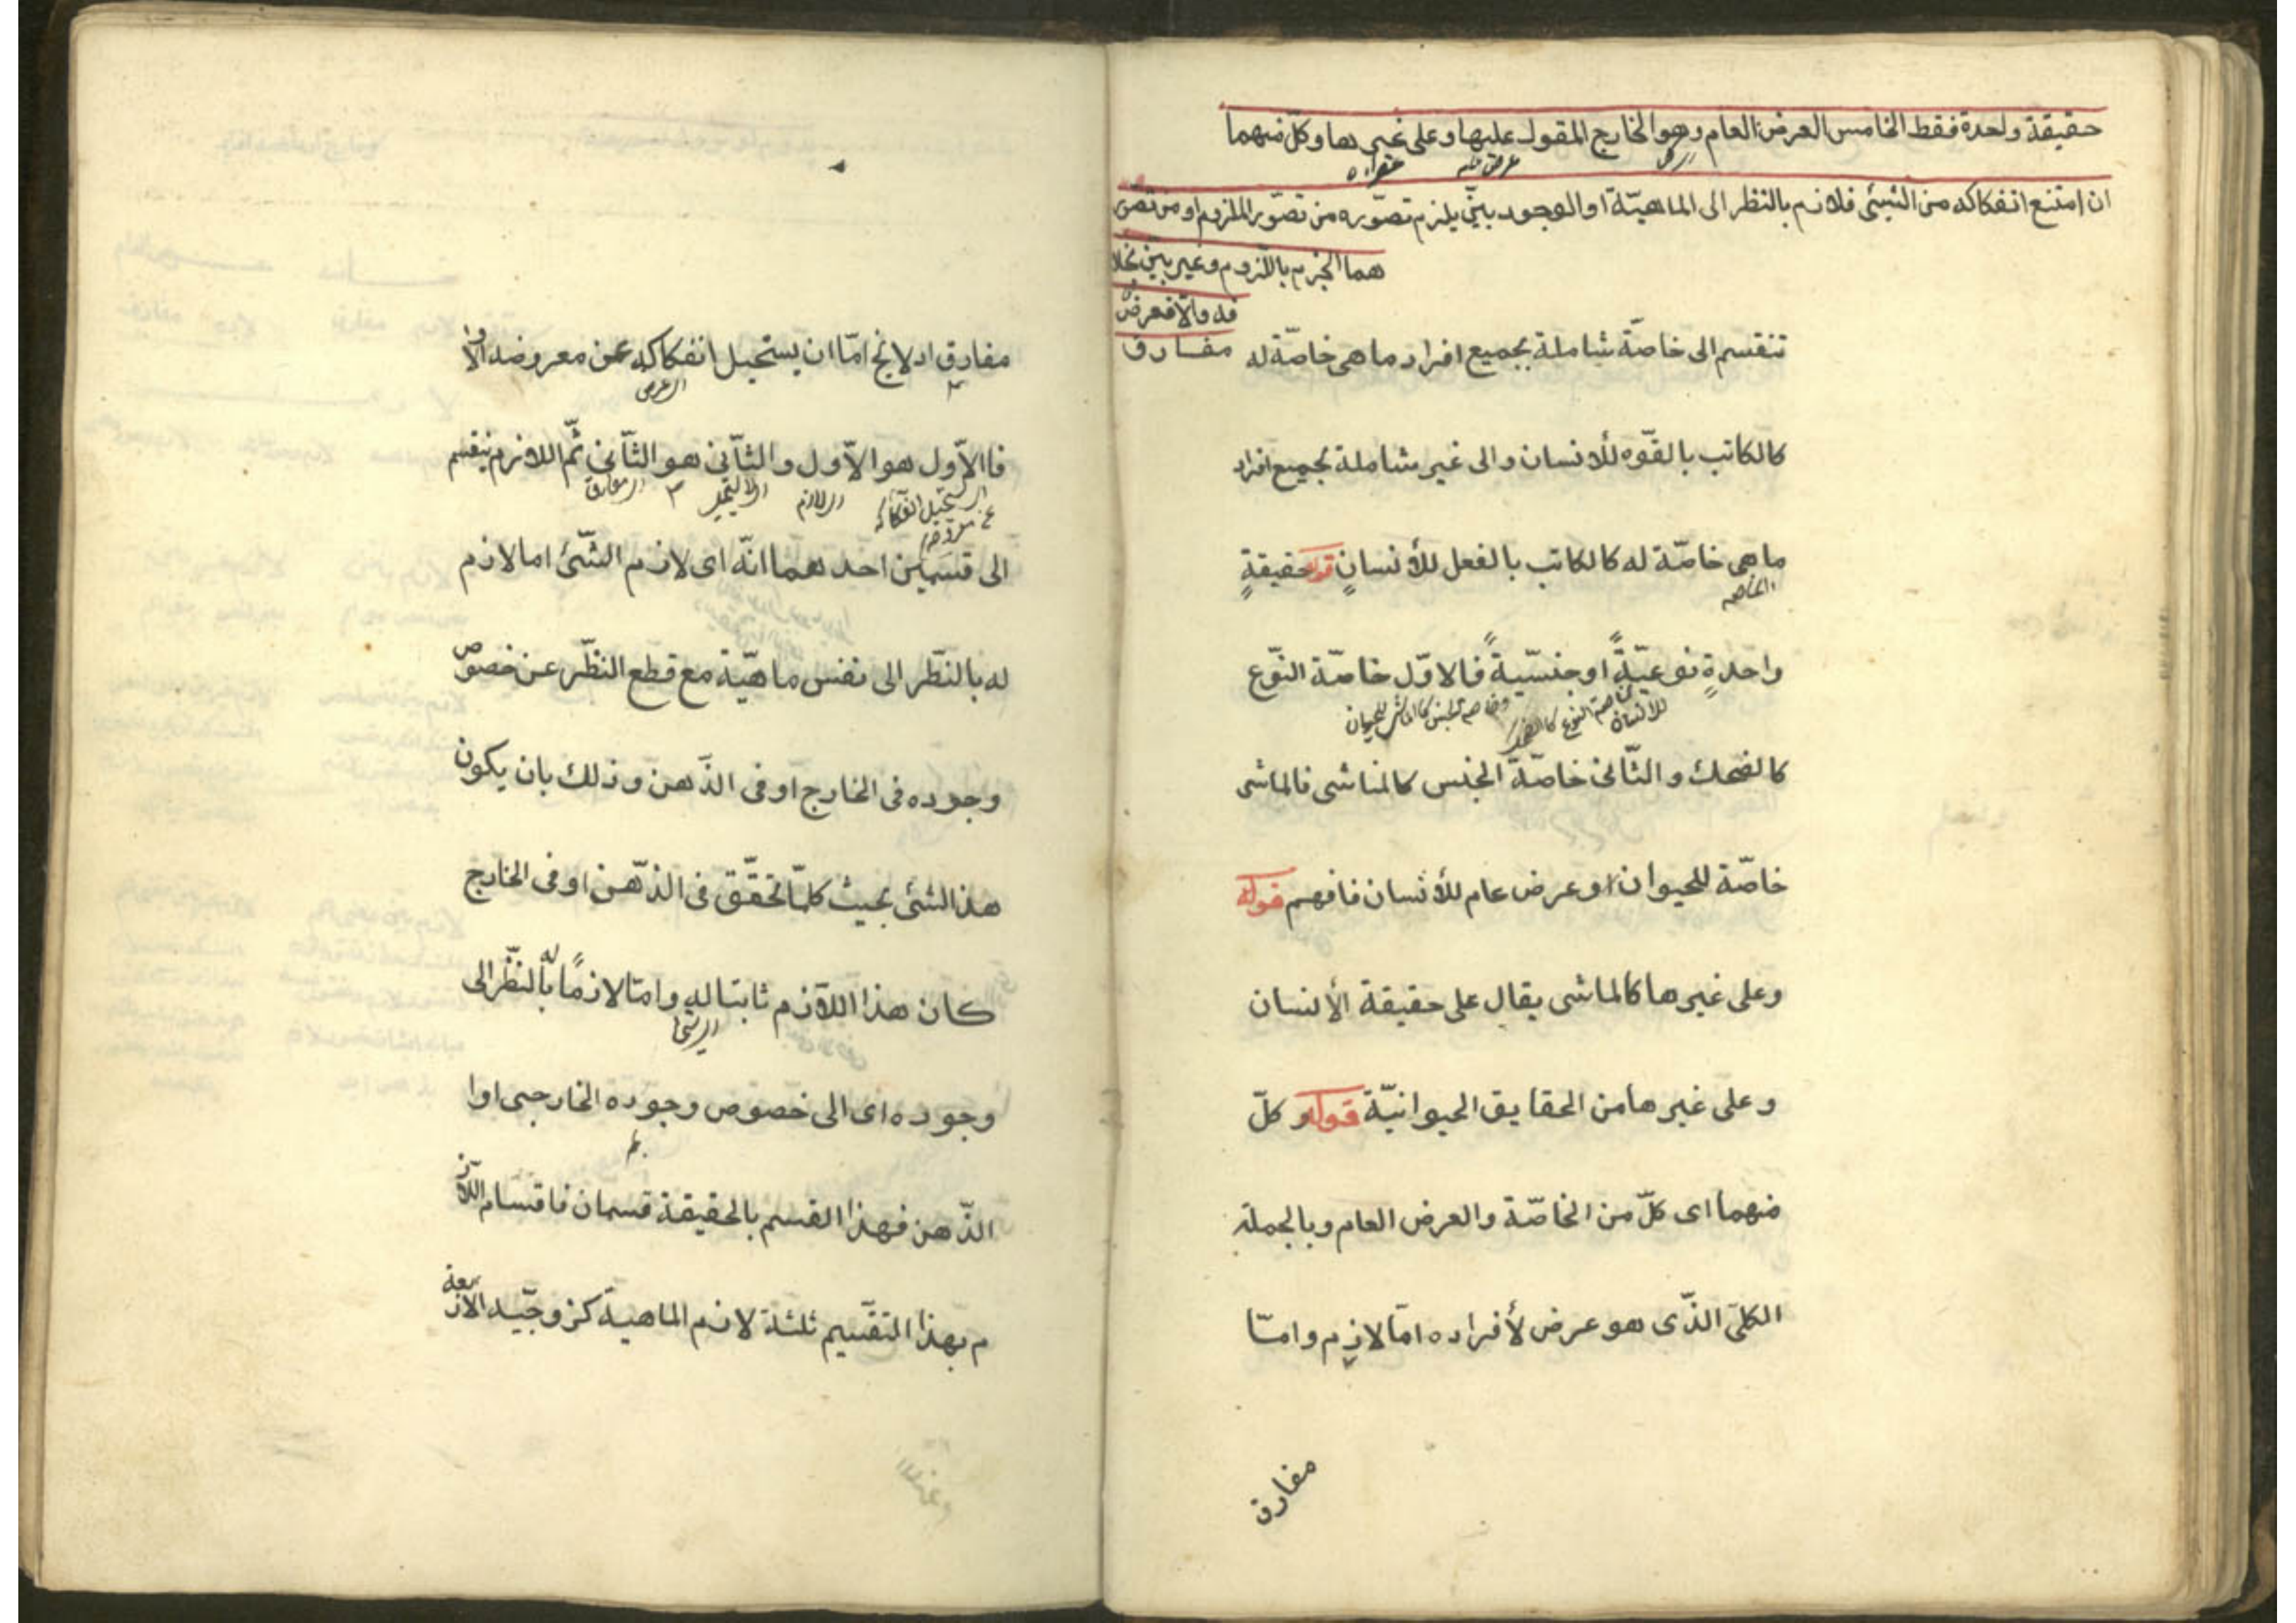 حقيقة واحدة فقط الخامس العرض العام وهو الخارج المقول عليها وعلى غيرها وكلّ منهما
ان امتنع انفكاكه من الشيئ فلازم بالنظر الى الماهيّة او الوجود بيّن يلزم تصوّره من تصوّر الملزوم او من تصور
هما الجزم باللّزوم وغير بيّن بخلا
فه والّا فعرض
مفارق
تنقسم الى خاصّة شاملة بجميع افراد ما هى خاصّة له
كالكاتب بالقوّه للأنسان والى غير شاملة لجميع افراد
ما هى خاصّة له كالكاتب بالفعل للأنسانٍ قوله حقيقةٍ
الخاصه
واحدةٍ نوعيّةً او جنسيّةً فالاوّل خاصّة النّوع
كالضحك والثّانى خاصّة الجنس كالماشى فالماشى
خاصّة للحيوان او عرض عام للأنسان فافهم قوله
وعلى غيرها كالماشى يقال على حقيقة الأنسان
وعلى غيرها من الحقايق الحيوانيّة قوله وكلّ
منهما اى كلّ من الخاصّة والعرض العام وبالجملة
الكلىّ الذّى هو عرض لأفراده امّا لازم وامّا
مفارق
مفارق اذ لا يخ امّا ان يستحيل انفكاكه عن معروضه او لا
فاالاّول هو الاّول والثّانى هو الثّانى ثمّ اللازم ينقسم
اللازم
المفارق
الى قسمين احدهما انّه اى لازم الشّئ اما لازم
له بالنّظر الى نفس ماهيّة مع قطع النظّر عن خصوص
وجوده فى الخارج او فى الذّهن وذلك بان يكون
هذا الشئى بحيث كلّما تحقّق فى الذّهن او فى الخارج
كان هذا اللاّزم ثابتا له وامّا لازمًا له بالنّظر الى
وجوده اى الى خصوص وجوده الخارجى او ا
الذّهن فهذا القسم بالحقيقة قسمان فاقسام اللاّز
م بهذا التقسّيم ثلثة لازم الماهية كزوجيّه الاربعة